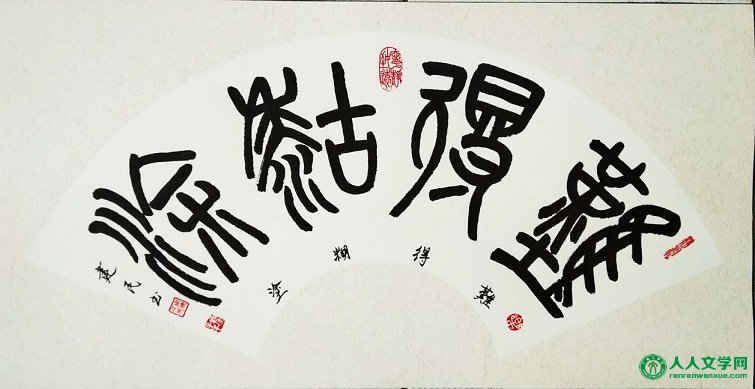 難得糊涂
難得糊塗
建民书
人人文学网
renrenwenxue.com